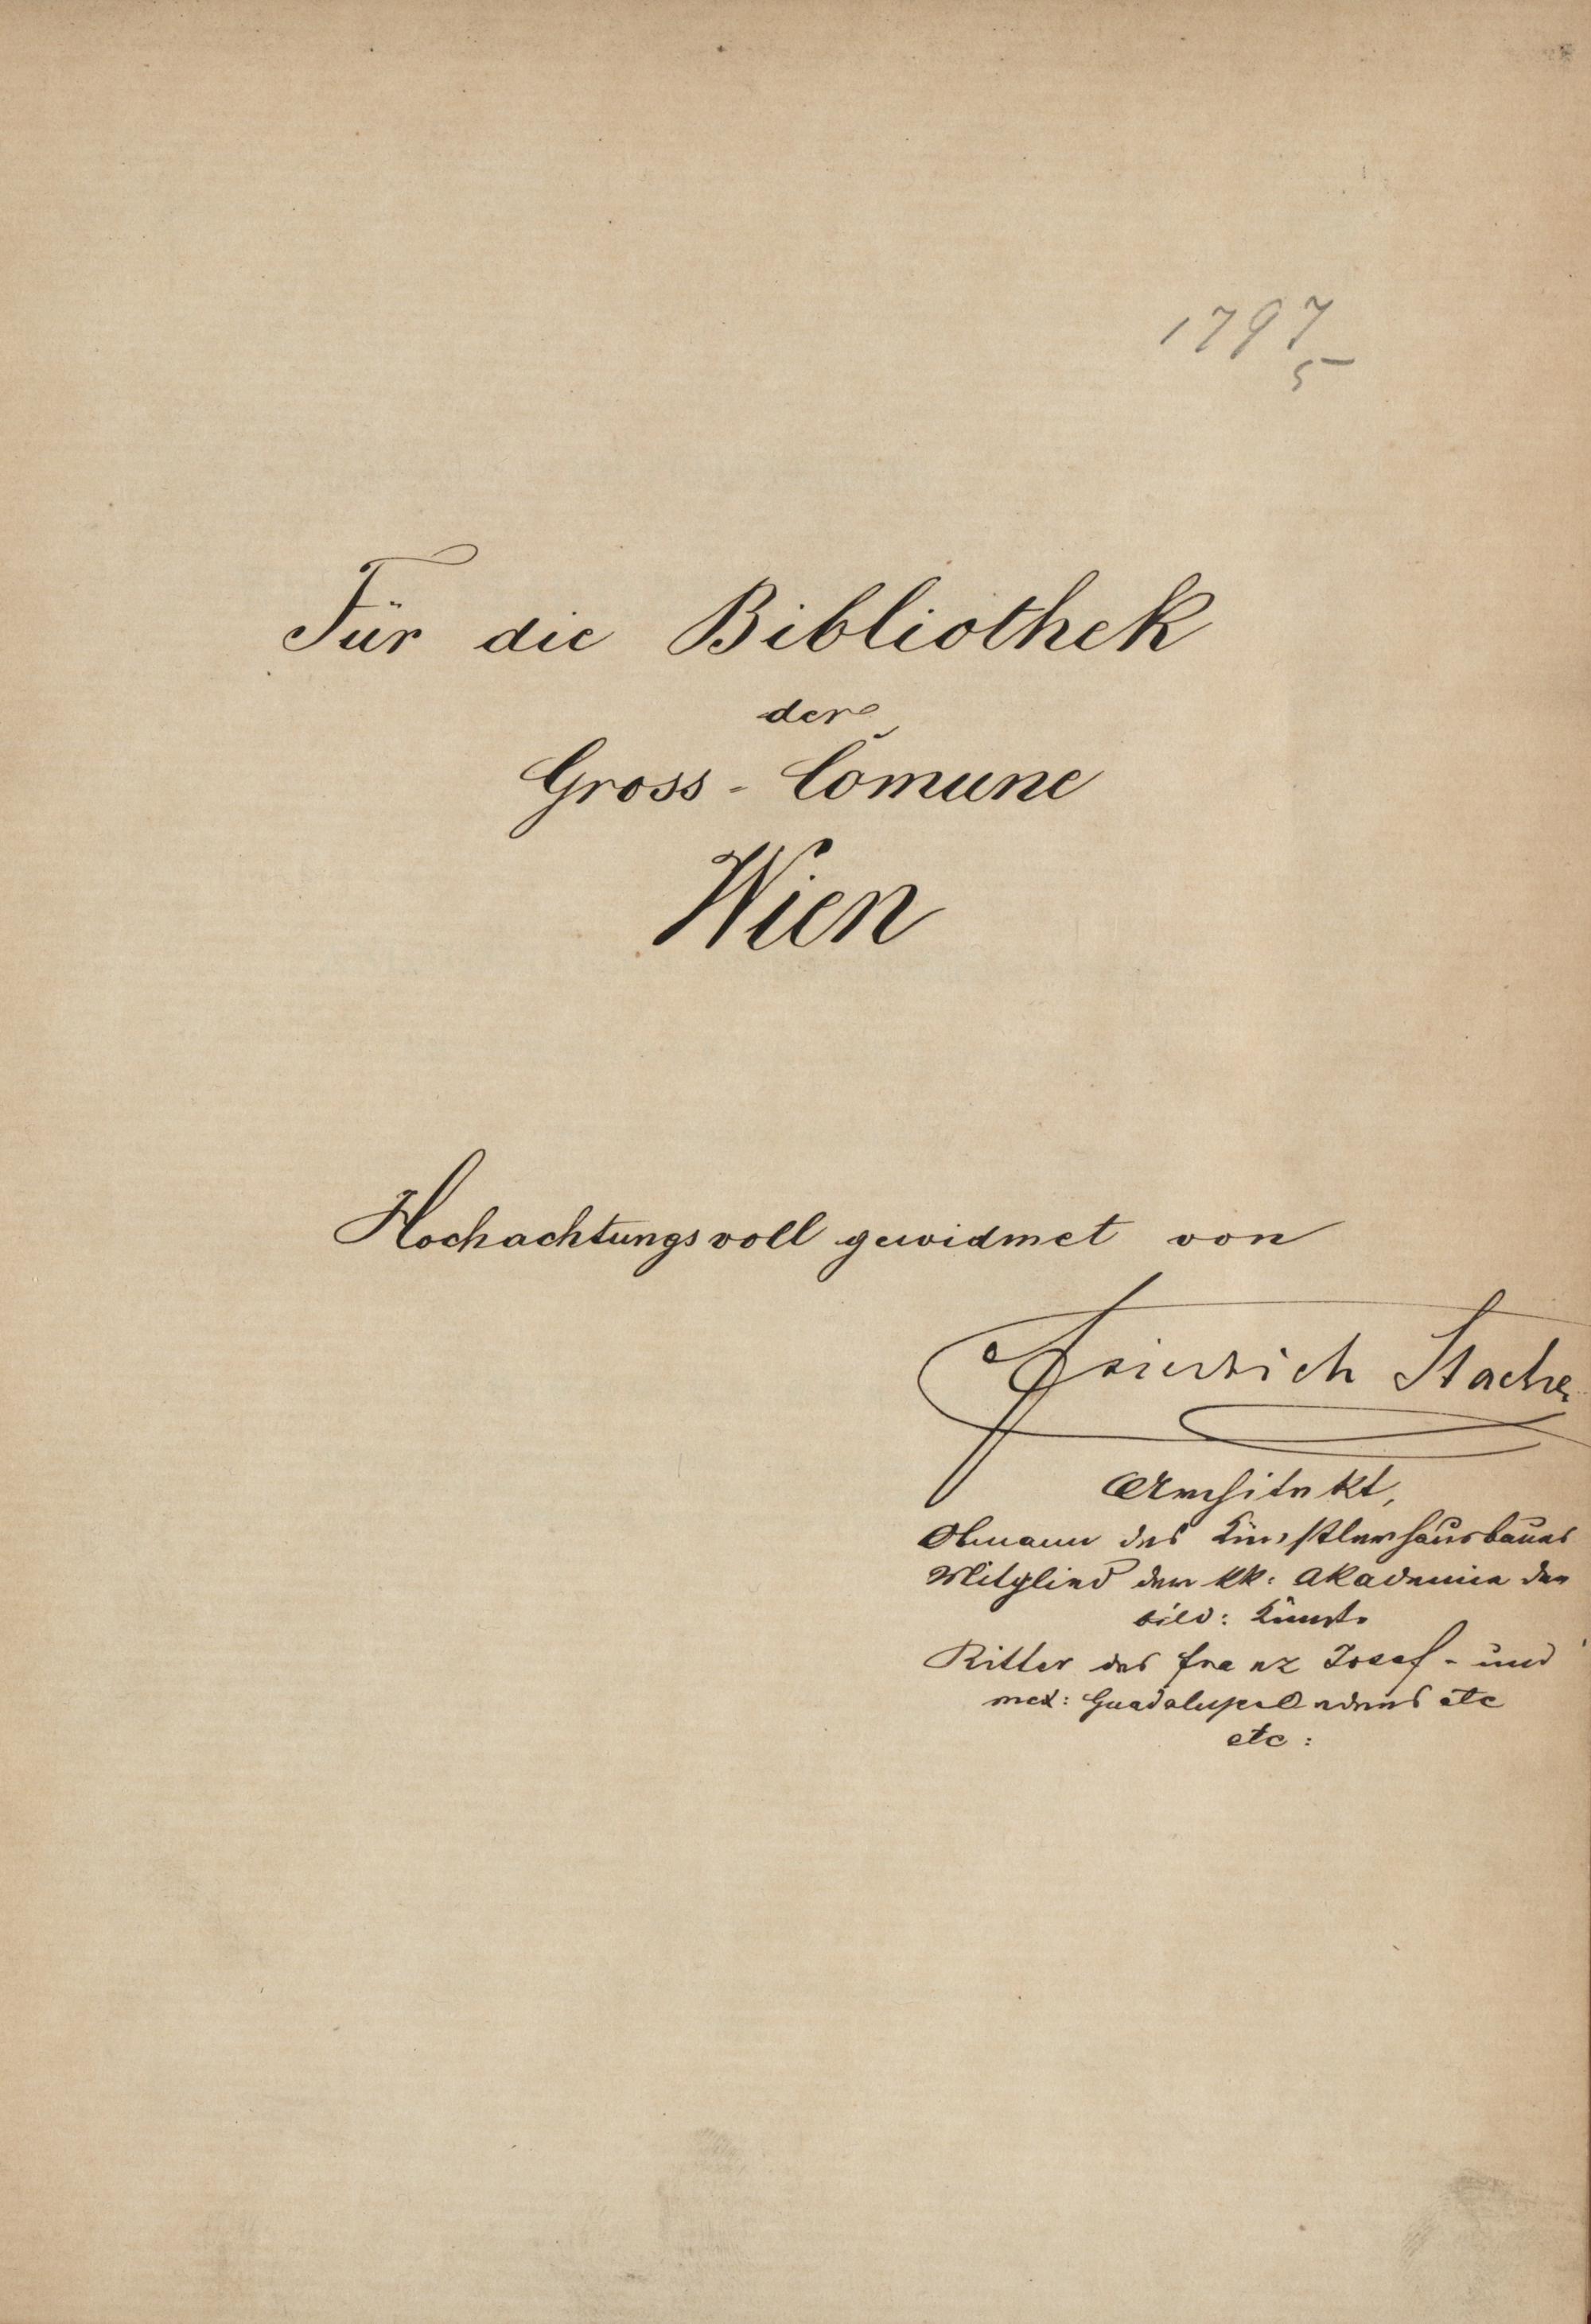 1797
5
Für die Bibliothek
der
Gross-Comune
Wien
Hochachtungsvoll gewidmet von
Friedrich Stache
Architekt,
Obmann des Künstlerhausbaues
Mitglied der kk: Akademie der
bild: Künste
Ritter des Franz Josef- und
mex: Guadalupe Ordens etc
etc: